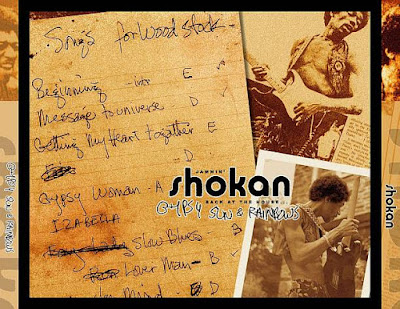 Songs for Wood Stock
Beginning - intr E
Message to universe D ✓
Getting My Heart together E
D
GYPSY Woman - A
IZABELLA
Slow Blues
Lover Man - B
Mind - D
JAMMIN'
shokan
BACK AT THE HOUSE
GYPSY SUN & RAINBOWS
GYPSY SUN & RAINBOWS
shokan